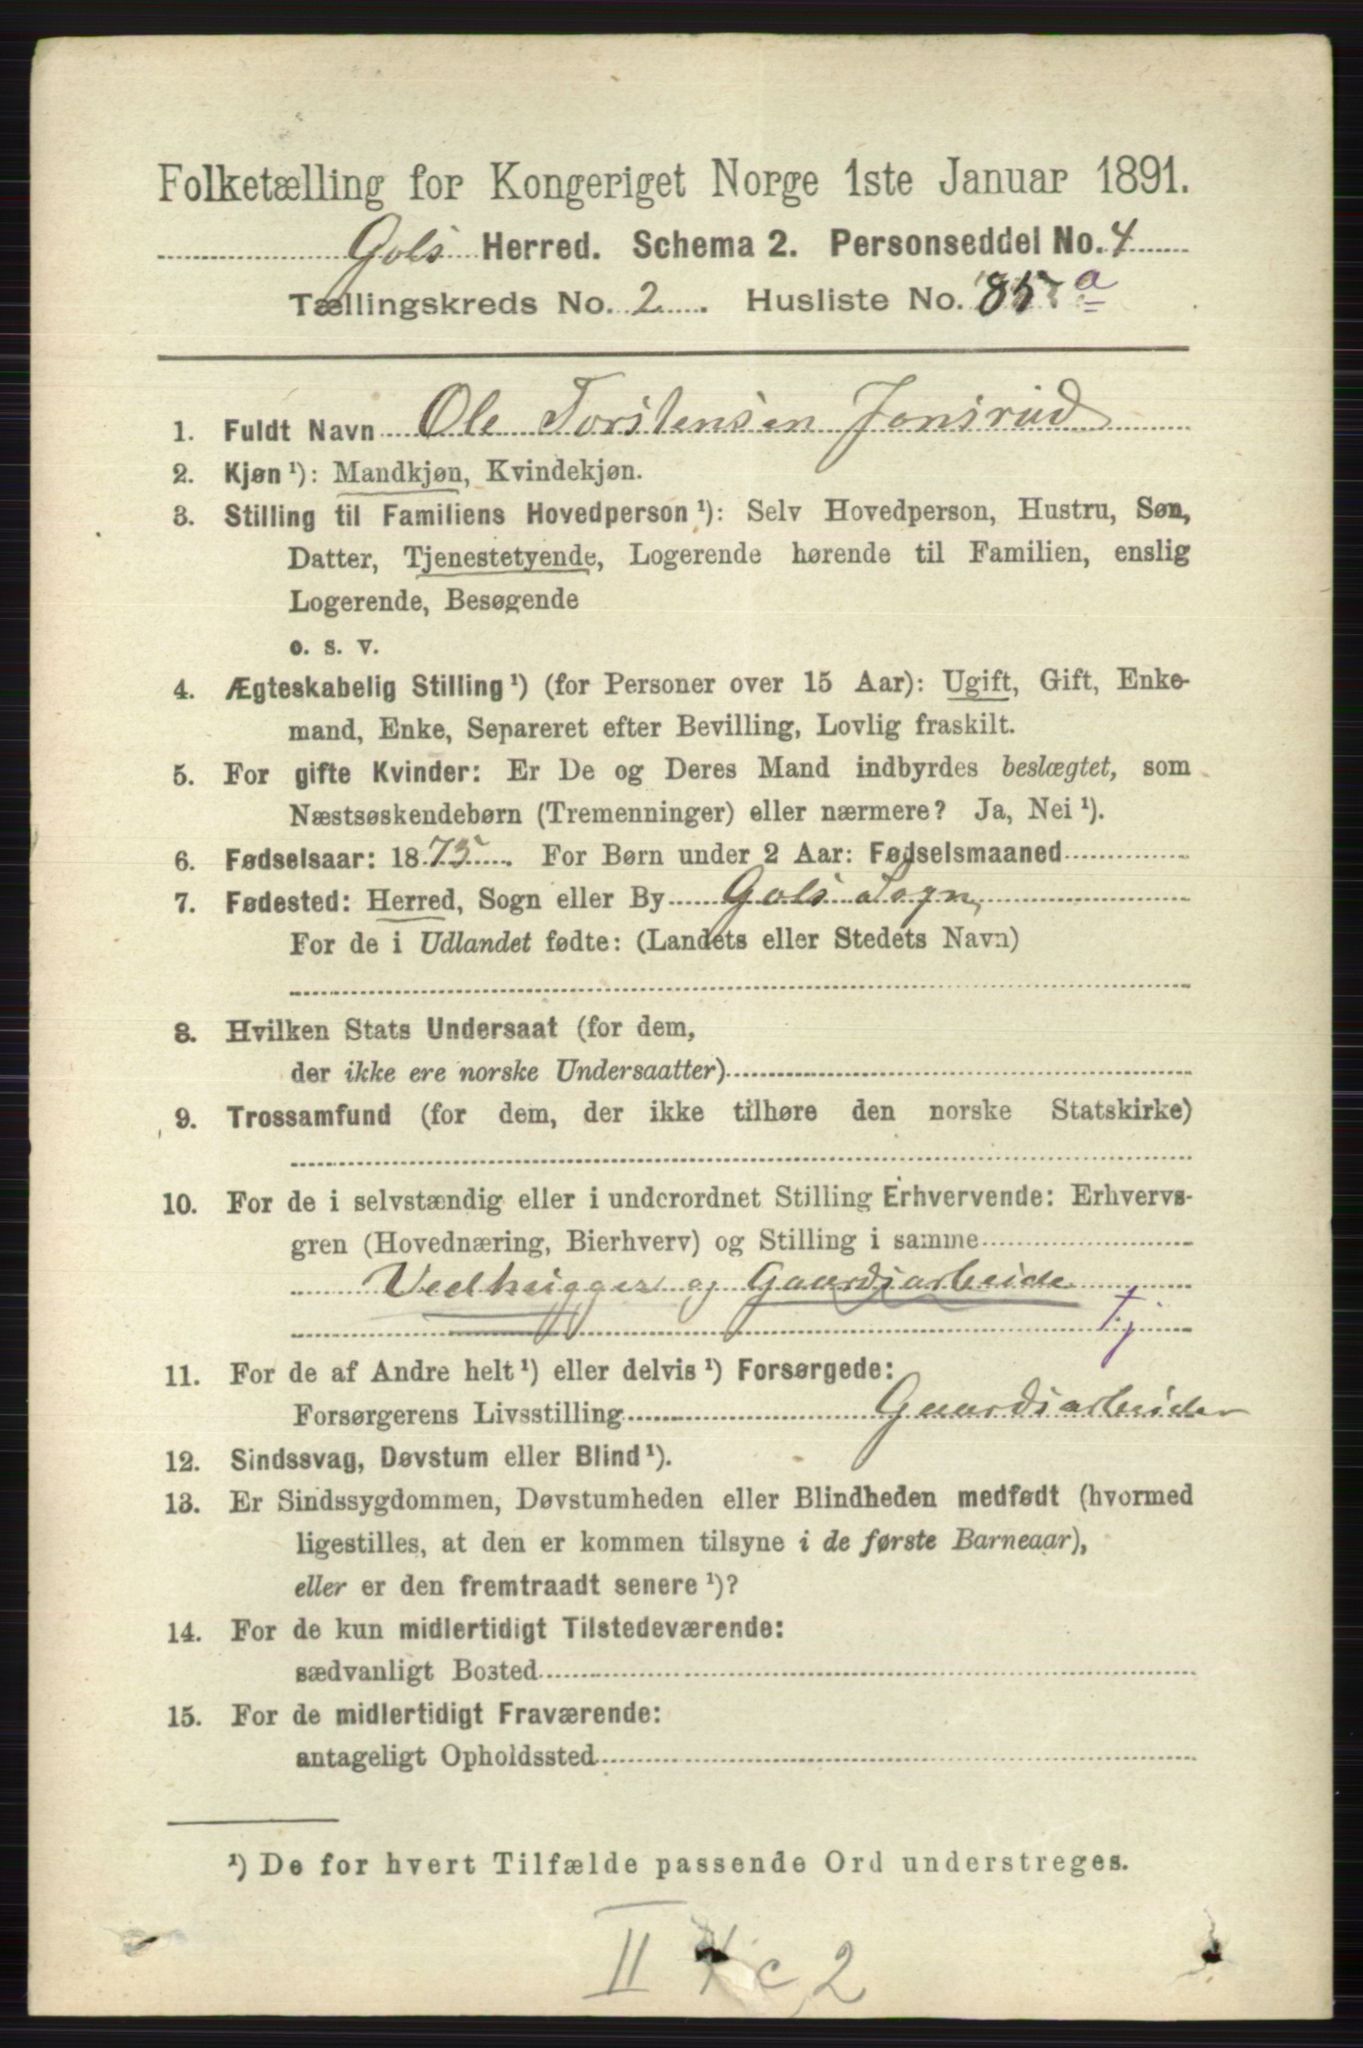 Folketælling for Kongeriget Norge 1ste Januar 1891.
Gols Herred. Schema 2. Personseddel No. 4
Tællingskreds No. 2. Husliste No. 85 a
1. Fuldt Navn Ole Torstensen Jonsrud
2. Kjøn ¹): Mandkjøn, Kvindekjøn.
3. Stilling til Familiens Hovedperson ¹): Selv Hovedperson, Hustru, Søn,
Datter, Tjenestetyende, Logerende hørende til Familien, enslig
Logerende, Besøgende
o. s. v.
4. Ægteskabelig Stilling ¹) (for Personer over 15 Aar): Ugift, Gift, Enke-
mand, Enke, Separeret efter Bevilling, Lovlig fraskilt.
5. For gifte Kvinder: Er De og Deres Mand indbyrdes beslægtet, som
Næstsøskendebørn (Tremenninger) eller nærmere? Ja, Nei ¹).
6. Fødselsaar: 1875. For Børn under 2 Aar: Fødselsmaaned
7. Fødested: Herred, Sogn eller By Gols Sogn,
For de i Udlandet fødte: (Landets eller Stedets Navn)
8. Hvilken Stats Undersaat (for dem,
der ikke ere norske Undersaatter)
9. Trossamfund (for dem, der ikke tilhøre den norske Statskirke)
10. For de i selvstændig eller i underordnet Stilling Erhvervende: Erhvervs-
gren (Hovednæring, Bierhverv) og Stilling i samme
Vedhugger og Gaardsarbeide
tj
11. For de af Andre helt ¹) eller delvis ¹) Forsørgede:
Forsørgerens Livsstilling Gaardsarbeider
12. Sindssvag, Døvstum eller Blind ¹).
13. Er Sindssygdommen, Døvstumheden eller Blindheden medfødt (hvormed
ligestilles, at den er kommen tilsyne i de første Barneaar),
eller er den fremtraadt senere ¹)?
14. For de kun midlertidigt Tilstedeværende:
sædvanligt Bosted
15. For de midlertidigt Fraværende:
antageligt Opholdssted
¹) De for hvert Tilfælde passende Ord understreges.
II c 2